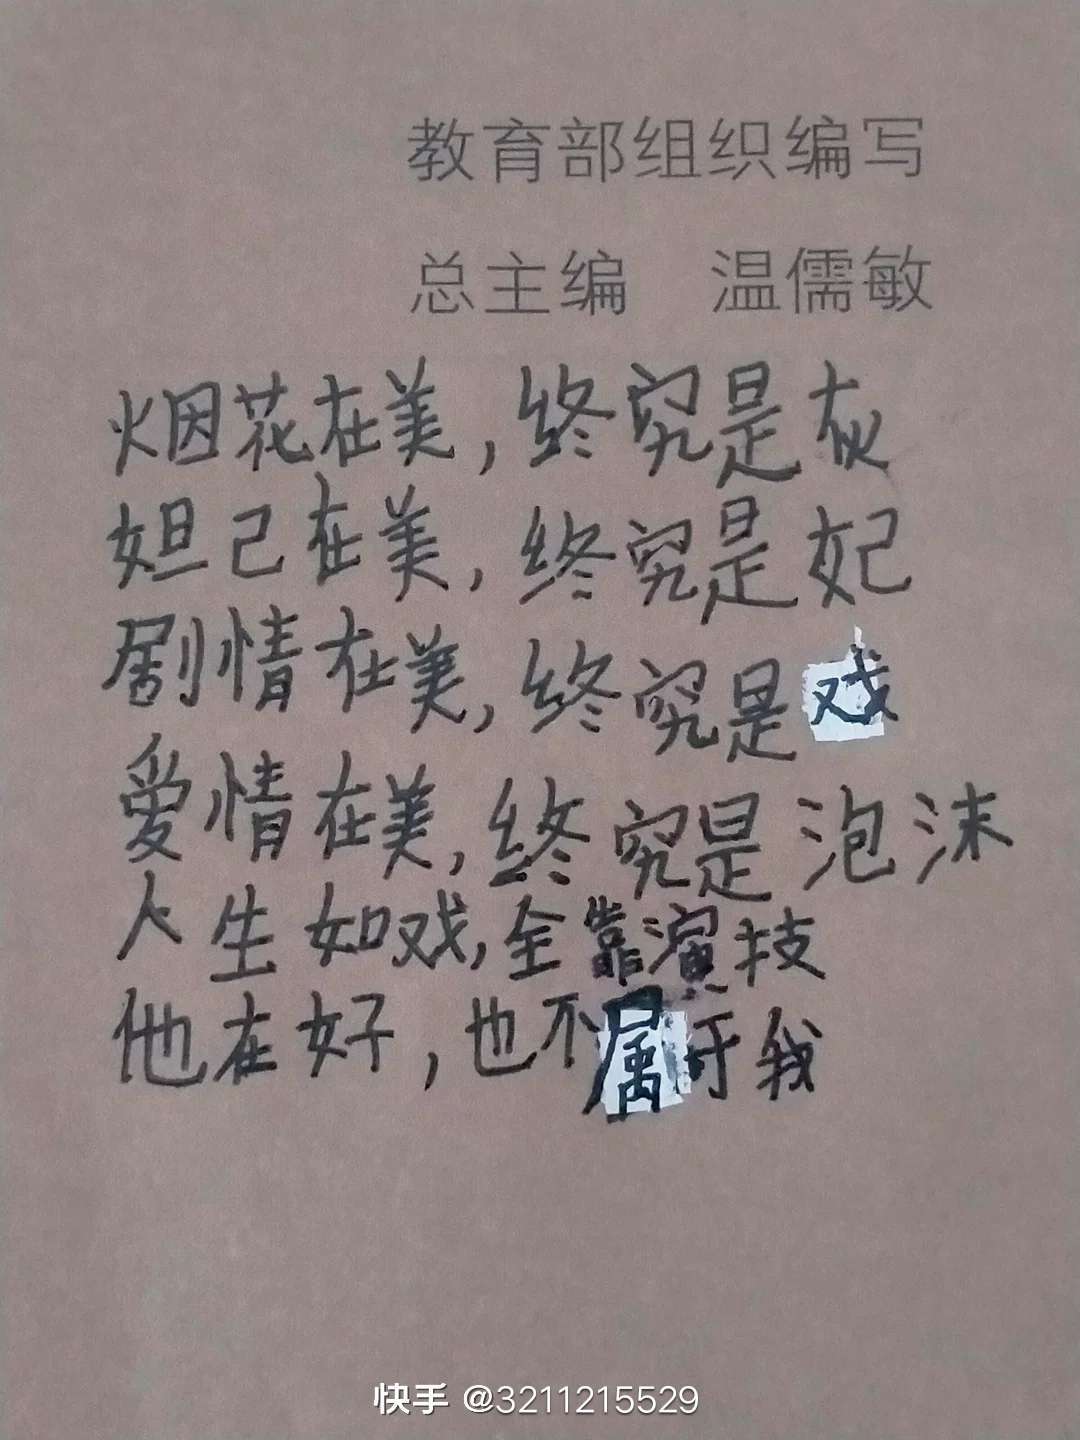 教育部组织编写
总主编 温儒敏
烟花在美,终究是灰
妲己在美,终究是妃
剧情在美,终究是戏
爱情在美,终究是泡沫
人生如戏,全靠演技
他在好,也不属于我
快手 @3211215529